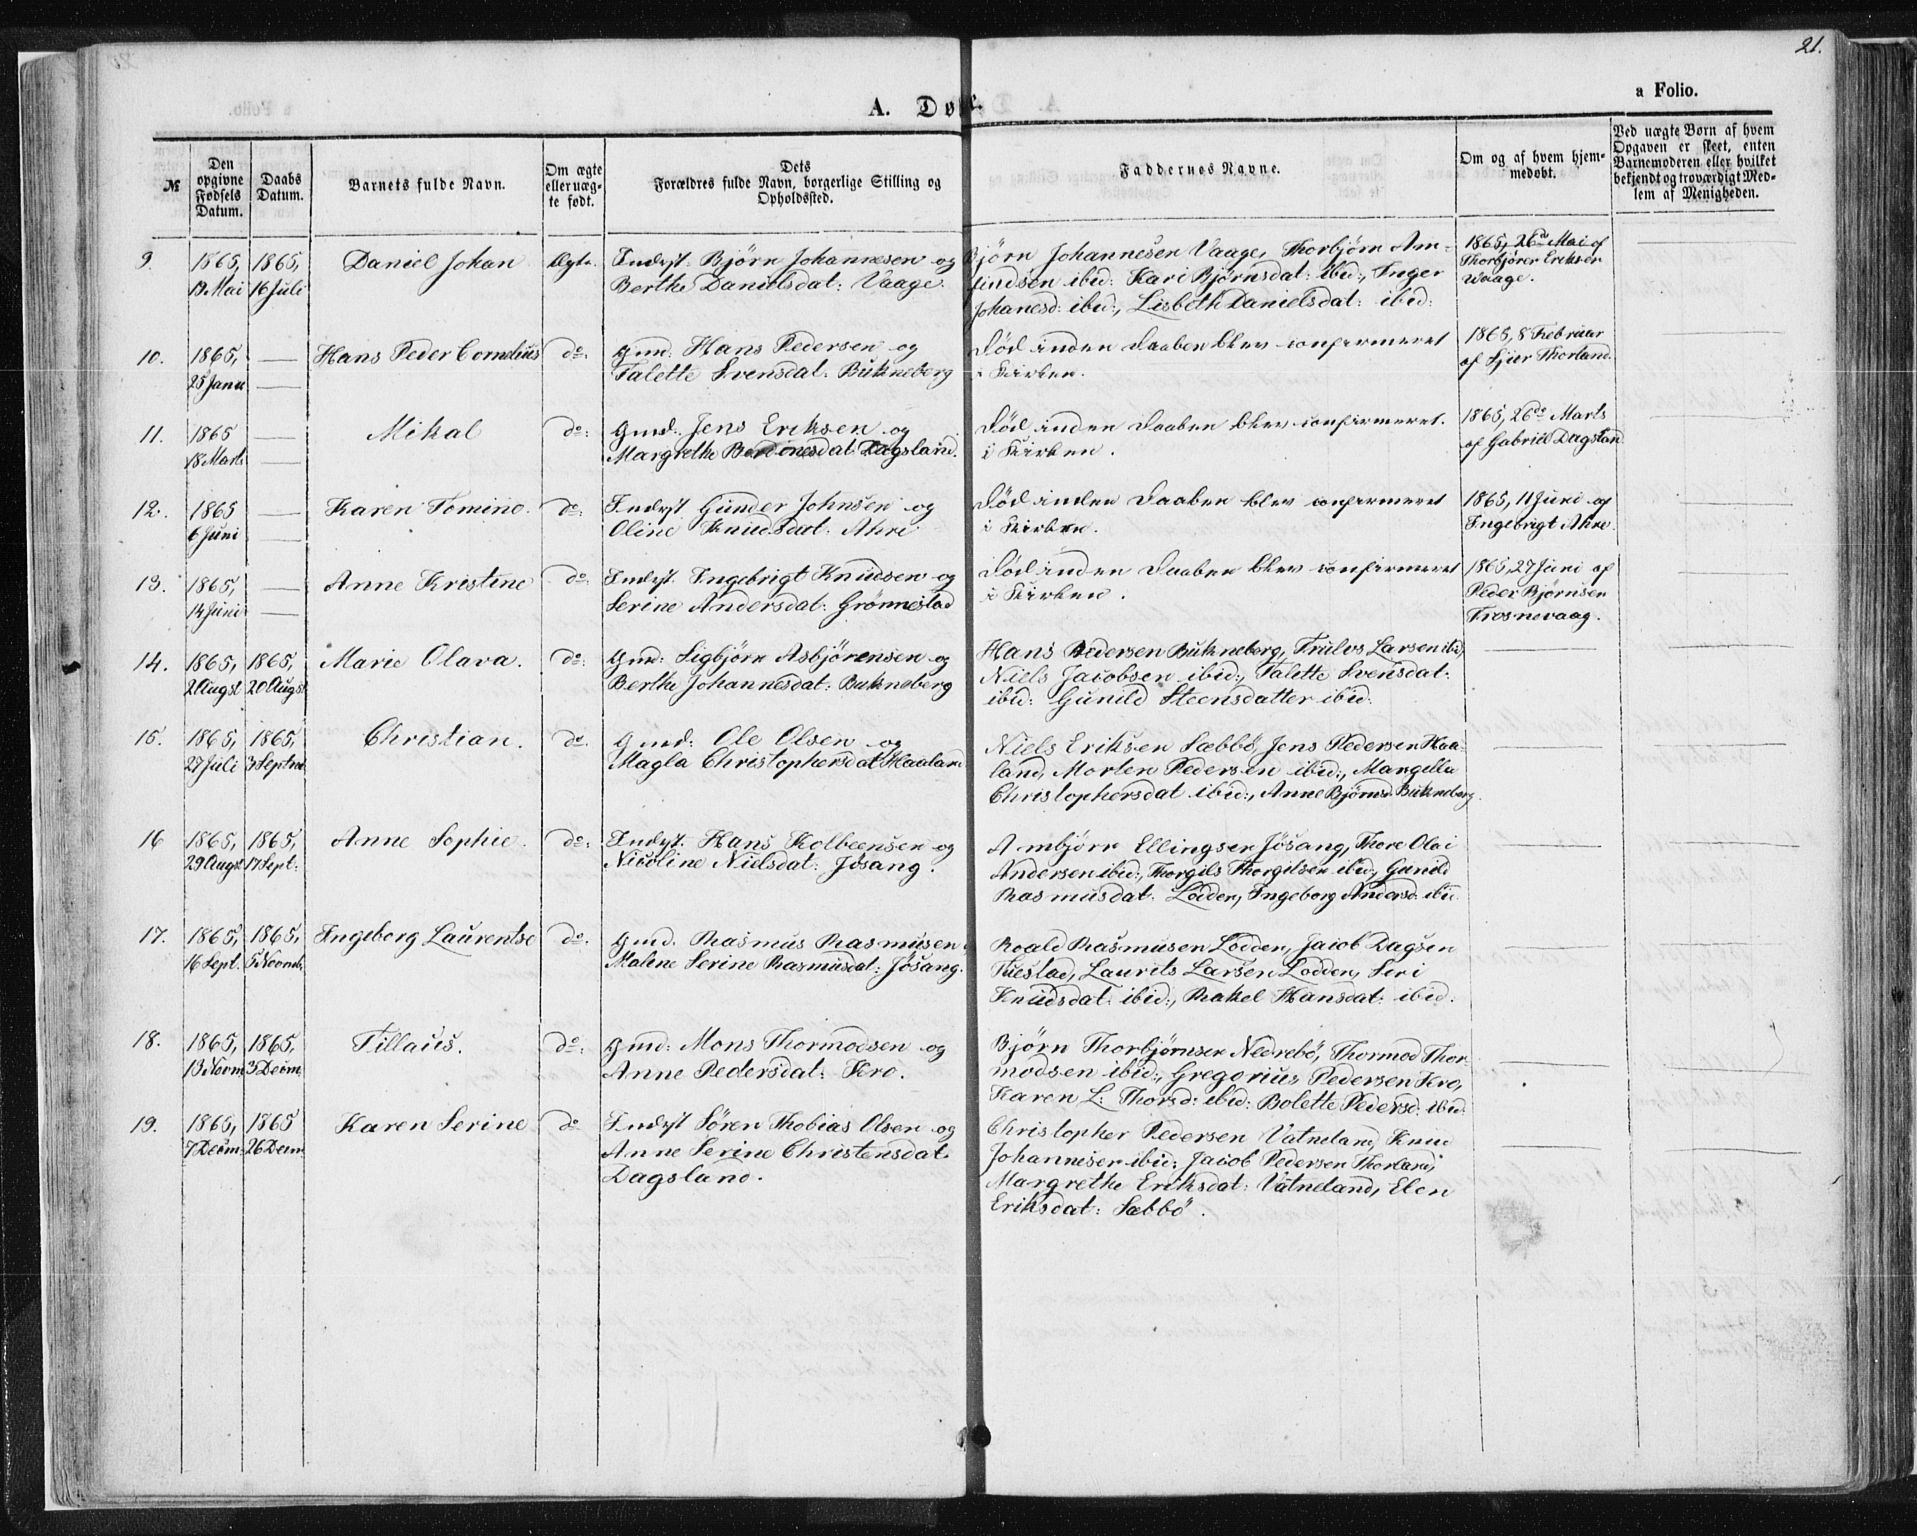 21.
a Folio.
A. Døbte.
№
Den opgivne Fødsels Datum.
Daabs Datum.
Barnets fulde Navn.
Om ægte eller uægte født.
Dets Forældres fulde Navn, borgerlige Stilling og Opholdssted.
Faddernes Navne.
Om og af hvem hjemmedøbt.
Ved uægte Børn af hvem Opgaven er skeet, enten Barnemoderen eller hvilket bekjendt og troværdigt Medlem af Menigheden.
9. 1865, 1865, Daniel Johan Ægte. Indyst. Björn Johannesen og Björn Johannesen Vaage, Thorbjörn Am- 1865, 26de Mai af
19 Mai 16 Juli Berthe Danielsdat: Vaage. undsen ibid: Kari Björnsdat: ibid:, Inger Thorbjörer Eriksen
Johanesd: ibid:, Lisbeth Danielsdat: ibid: Waage.
10. 1865, — Hans Peder Cornelius do: Gmd: Hans Pedersen og Död inden Daaben blev confirmeret 1865, 8 Februar
25 Janu — Talette Svensdat: Bukneberg i Kirken. af Sjur Thorland.
11. 1865 — Mikal do: Gmd: Jens Eriksen og Död inden Daaben blev confirmeret. 1865, 26de Marts
18 Marts — Margrethe Dagsland. i Kirken. af Gabriel Dagsland
12. 1865 — Karen Tomine. do: Indyst Gunder Johnsen og Död inden Daaben blev confirmeret 1865, 11 Juni og
6 Juni — Oline Knudsdat: Ahre i Kirken. Ingebrigt Ahre.
13. 1865, — Anne Kristine do: Indyst. Ingebrigt Knudsen og Död inden Daaben blev confirmeret 1865, 27 Juni af
14 Juni — Serine Andersdat: Grönnestad i Kirken. Peder Björnsen
Trosnevaag.
14. 1865, 1865, Marie Olava. do: Gmd: Sigbjörn Asbjörensen og Hans Pedersen Bukneberg, Trulvs Larsen ibid,
2 Augst 20 Augst Berthe Johannesdat: Bukneberg Niels Jacobsen ibid:, Talette Svensdat:
ibid: Gunild Steensdatter ibid:
15. 1865, 1865, Christian. do. Gmd: Ole Olsen og Niels Eriksen Sæbbö, Jens Pedersen Haa-
27 Juli 3 Septm Magla Christophersdat Haaland land, Morten Pedersen ibid:, Margella
Christophersdat ibid:, Anne Björnsd Bukneberg.
16 1865, 1865, Anne Sophie. do: Indyst. Hans Kolbeensen og Ambjörn Ellingsen Jösang, Thore Olai
29 Augst 17 Sept: Nicoline Nielsdat: Jösang. Andersen ibid:, Thorgils Thorgilsen ibid:, Gunild
Rasmusdat: Lodden, Ingeborg Andersd: ibid.
17. 1865, 1865, Ingeborg Laurentse do. Gmd. Rasmus Rasmusen Roald Rasmusen Lodden, Jacob Dagsen
16 Sept. 5 Novmb. Malene Serine Rasmusdat: Jösang. Tuestad, Laurits Larsen Lodden, Siri
Knudsdat: ibid:, Rakel Hansdat: ibid.
18. 1865, 1865, Tillaus. do: Gmd: Mons Thormodsen og Björn Thorbjörnsen Nedrebö, Thormod Thor-
13 Novm 3 Decm. Anne Pedersdat: Kro. modsen ibid:, Gregorius Pedersen Kro,
Karen L: Thorsd: ibid: Bolette Pedersd: ibid.
19. 1865, 1865 Karen Serine do Indyst Sören Thobias Olsen og Christopher Pedersen Vatneland, Knud
7 Decm: 26 Decm Anne Serine Christensdat Johannesen ibid:, Jacob Pedersen Thorland,
Dagsland. Margrethe Eriksdat: Vatneland, Elen
Eriksdat: Sæbbö.